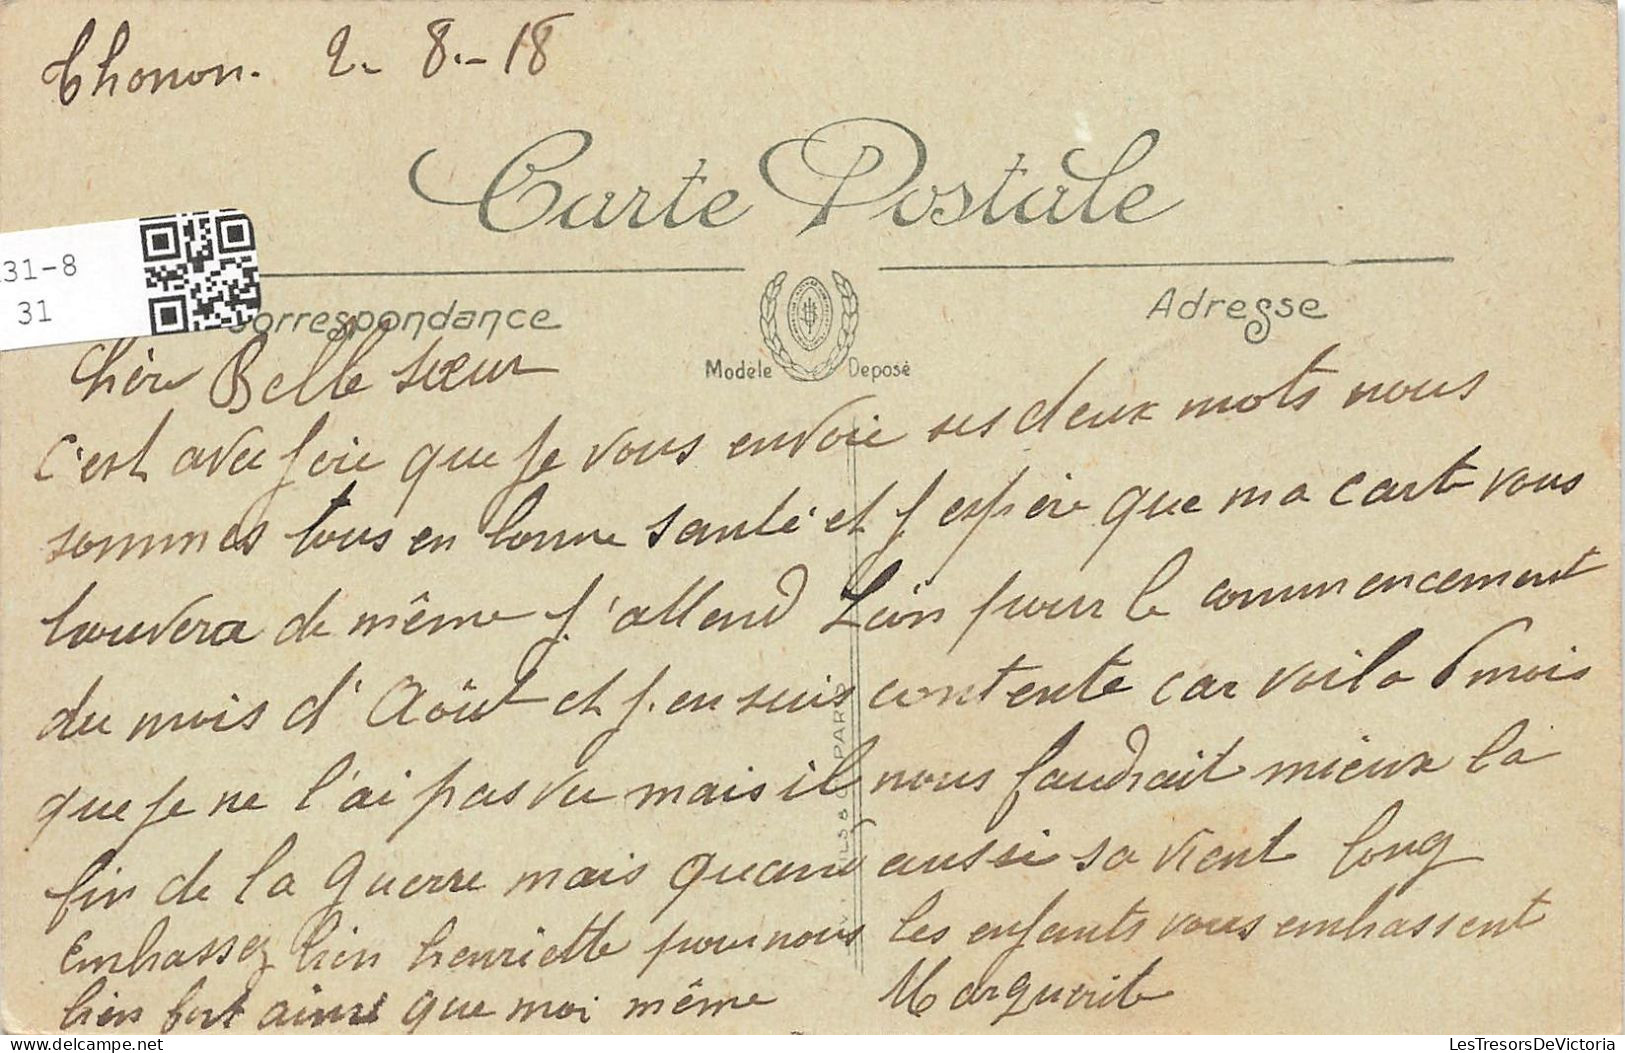 Thonon. 2 - 8. - 18
Carte Postale
31-8
31
Correspondance
Adresse
Modèle Deposé
Chère Belle sœur
c'est avec joie que je vous envoie ses deux mots nous
sommes tous en bonne santé et j espère que ma carte vous
trouvera de même j'attend Léon pour le commencement
du mois d'Aôut et j.en suis contente car voila 6 mois
que je ne l'ai pas vu mais il nous faudrait mieux la
fin de la guerre mais quand aussi sa vient long
Embrassez bien henriette pour nous les enfants vous embrassent
bien fort ainsi que moi même Marguerite
PARIS
LesTresorsDeVictoria
delcampe.net
LesTresorsDeVictoria